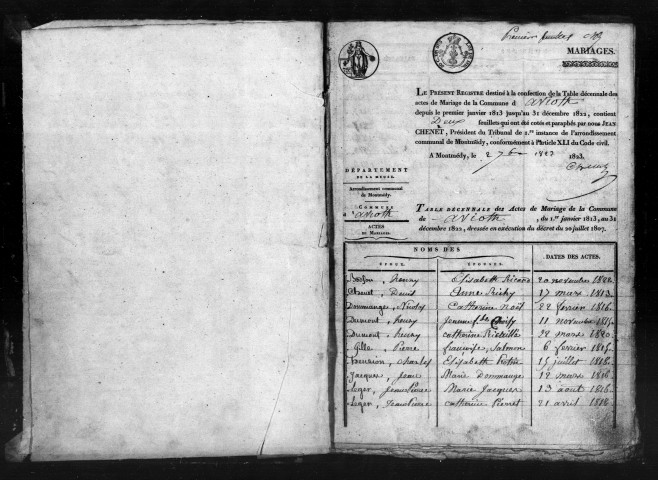 Premier feuillet
MARIAGES.
LE PRÉSENT REGISTRE destiné à la confection de la Table décennale des
actes de Mariage de la Commune d avioth
depuis le premier janvier 1813 jusqu'au 31 décembre 1822, contient
Deux feuillets qui ont été cotés et paraphés par nous JEAN
CHENET, Président du Tribunal de 1.re instance de l'arrondissement
communal de Montmédy, conformément à l'Article XLI du Code civil.
A Montmédy, le 2 7bre 1823 1823.
Chenet
DÉPARTEMENT
DE LA MEUSE.
Arrondissement communal
de Montmédy.
COMMUNE
d'avioth
ACTES
DE MARIAGES.
TABLE DÉCENNALE des Actes de Mariage de la Commune
de avioth, du 1.er janvier 1813, au 31
décembre 1822, dressée en exécution du décret du 20 juillet 1807.
NOMS DES
DATES DES ACTES.
ÉPOUX. ÉPOUSES.
henry Elisabeth 20 novembre 1822.
Denis Anne 17 mars 1813.
Dommange, Nicolas Catherine noël 22 février 1816.
Dumont, henry jeanne 11 novembre 1815.
Dumont, henry catherine 28 mars 1820.
Gille, Pierre françoise Salmon 6 février 1815.
henrion, Charles Elisabeth 15 juillet 1818.
Jacques, jean Marie Dommange 12 mars 1816.
Leger, jean Pierre Marie Jacques 13 août 1816.
Leger, Jean Pierre catherine Pierret 21 avril 1818.